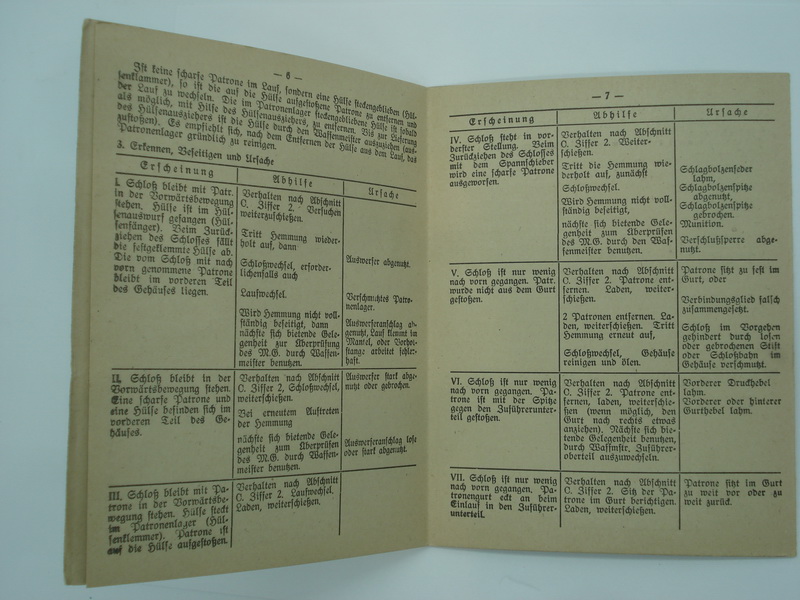 — 6 —
Ist keine scharfe Patrone im Lauf, sondern eine Hülse steckengeblieben (Hül-
senklammer), so ist die auf die Hülse aufgestoßene Patrone zu entfernen und
der Lauf zu wechseln. Die im Patronenlager steckengebliebene Hülse ist sobald
als möglich, mit Hilfe des Hülsenausziehers, zu entfernen. Bis zur Lieferung
des Hülsenausziehers ist die Hülse durch den Waffenmeister auszustoßen (aus-
zustoßen). Es empfiehlt sich, nach dem Entfernen der Hülse aus dem Lauf, das
Patronenlager gründlich zu reinigen.
3. Erkennen, Beseitigen und Ursache
Erscheinung
I. Schloß bleibt mit Patr.
in der Vorwärtsbewegung
stehen. Hülse ist im Hül-
senauswurf gefangen (Hül-
senfänger). Beim Zurück-
ziehen des Schlosses fällt
die festgeklemmte Hülse ab.
Die vom Schloß mit nach
vorn genommene Patrone
bleibt im vorderen Teil
des Gehäuses liegen.
Abhilfe
Verhalten nach Abschnitt
C. Ziffer 2. Versuchen
weiterzuschießen.
Tritt Hemmung wieder-
holt auf, dann
Schloßwechsel, erforder-
lichenfalls auch
Laufwechsel.
Wird Hemmung nicht voll-
ständig beseitigt, dann
nächste sich bietende Gele-
genheit zur Überprüfung
des M.G. durch Waffen-
meister benutzen.
Ursache
Auswerfer abgenutzt.
Verschmutztes Patro-
nenlager.
Auswerferanschlag ab-
genutzt, Lauf klemmt im
Mantel, oder Vorhol-
stange arbeitet schler-
haft.
II. Schloß bleibt in der
Vorwärtsbewegung stehen.
Eine scharfe Patrone und
eine Hülse befinden sich im
vorderen Teil des Ge-
häuses.
Verhalten nach Abschnitt
C. Ziffer 2, Schloßwechsel,
weiterschießen.
Bei erneutem Auftreten
der Hemmung
nächste sich bietende Gele-
genheit zum Überprüfen
des M.G. durch Waffen-
meister benutzen.
Auswerfer stark abge-
nutzt oder gebrochen.
Auswerferanschlag lose
oder stark abgenutzt.
III. Schloß bleibt mit Pa-
trone in der Vorwärtsbe-
wegung stehen. Hülse steckt
im Patronenlager (Hül-
senklemmer). Patrone ist
auf die Hülse aufgestoßen.
Verhalten nach Abschnitt
C. Ziffer 2. Laufwechsel.
Laden, weiterschießen.
— 7 —
Erscheinung
Abhilfe
Ursache
IV. Schloß steht in vor-
derster Stellung. Beim
Zurückziehen des Schlosses
mit dem Spannschieber
wird eine scharfe Patrone
ausgeworfen.
Verhalten nach Abschnitt
C. Ziffer 2. Weiter-
schießen.
Tritt die Hemmung wie-
derholt auf, zunächst
Schloßwechsel.
Wird Hemmung nicht voll-
ständig beseitigt,
nächste sich bietende Gele-
genheit zum Überprüfen
des M.G. durch Waf-
fenmeister benutzen.
Schlagbolzenfeder
lahm,
Schlagbolzenspitze
abgenutzt,
Schlagbolzenspitze
gebrochen.
Munition.
Verschlußsperre abge-
nutzt.
V. Schloß ist nur wenig
nach vorn gegangen. Patr.
wurde nicht aus dem Gurt
gestoßen.
Verhalten nach Abschnitt
C. Ziffer 2. Patrone ent-
fernen. Laden, weiter-
schießen.
2 Patronen entfernen. La-
den, weiterschießen. Tritt
Hemmung erneut auf,
Schloßwechsel, Gehäuse
reinigen und ölen.
Patrone sitzt zu fest im
Gurt, oder
Verbindungsglied falsch
zusammengesetzt.
Schloß im Vorgehen
gehindert durch losen
oder gebrochenen Stift
oder Schloßbahn im
Gehäuse verschmutzt.
VI. Schloß ist nur wenig
nach vorn gegangen. Pa-
trone ist mit der Spitze
gegen den Zuführerunter-
teil gestoßen.
Verhalten nach Abschnitt
C. Ziffer 2. Patrone ent-
fernen, laden, weiterschie-
ßen (wenn möglich, den
Gurt nach rechts etwas
anziehen). Nächste sich bie-
tende Gelegenheit benutzen,
durch Waffmstr. Zuführer-
oberteil auszuwechseln.
Vorderer Druckhebel
lahm.
Vorderer oder hinterer
Gurthebel lahm.
VII. Schloß ist nur wenig
nach vorn gegangen. Pa-
tronengurt eckt an beim
Einlauf in den Zuführer-
unterteil.
Verhalten nach Abschnitt
C. Ziffer 2. Sitz der Pa-
trone im Gurt berichtigen.
Laden, weiterschießen.
Patrone sitzt im Gurt
zu weit vor oder zu
weit zurück.